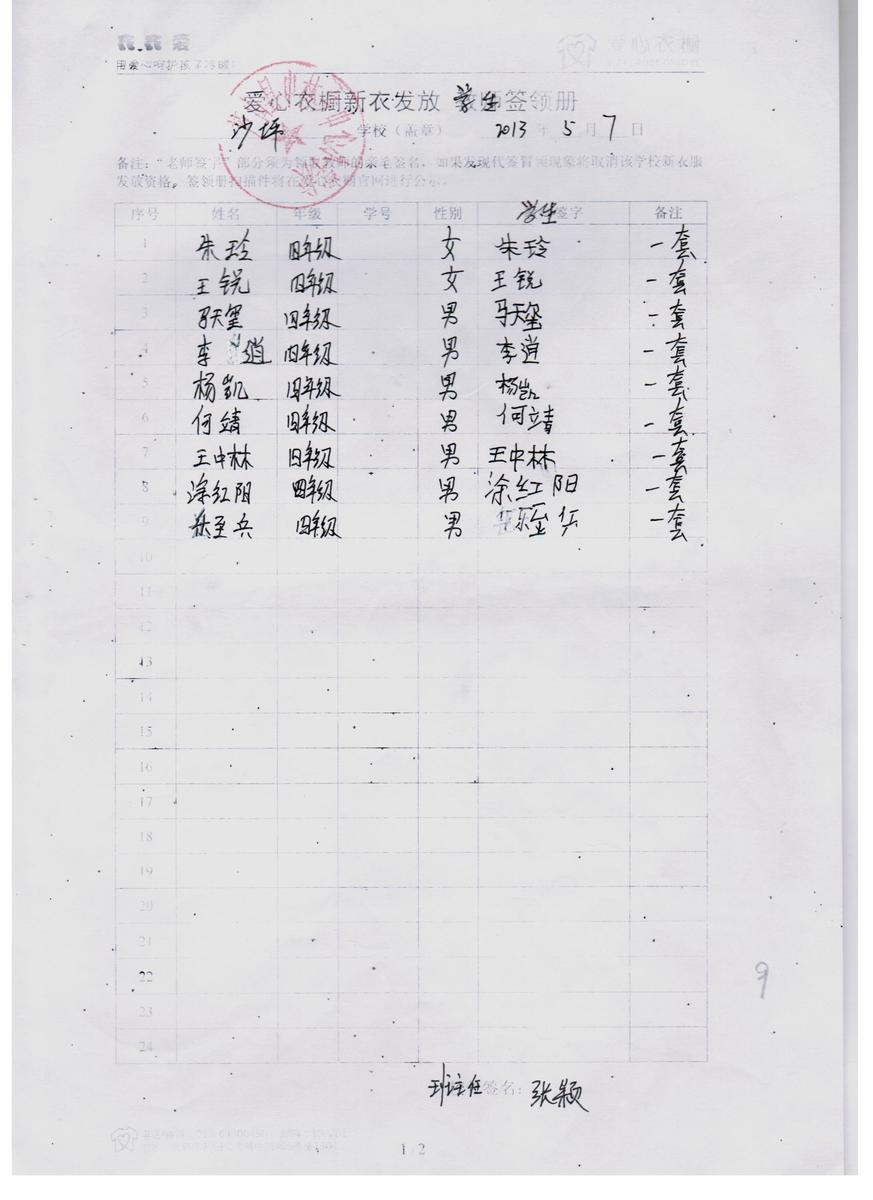 用爱心呵护孩子冷暖!
爱心衣橱新衣发放 学生 教师签领册
沙坪 学校（盖章） 2013 年 5 月 7 日
备注：“老师签字”部分须为领取教师的亲笔签名，如果发现代签冒领现象将取消该学校新衣服
发放资格。签领册扫描件将在爱心衣橱官网进行公示。
序号 姓名 年级 学号 性别 学生签字 备注
1 朱玲 四年级 女 朱玲 一套
2 王锐 四年级 女 王锐 一套
3 马天玺 四年级 男 马天玺 一套
4 李逍 四年级 男 李逍 一套
5 杨凯 四年级 男 杨凯 一套
6 何靖 四年级 男 何靖 一套
7 王中林 四年级 男 王中林 一套
8 涂红阳 四年级 男 涂红阳 一套
9 乐至兵 四年级 男 乐至兵 一套
10
11
12
13
14
15
16
17
18
19
20
21
22
23
24
9
班主任签名：张颖
1 / 2